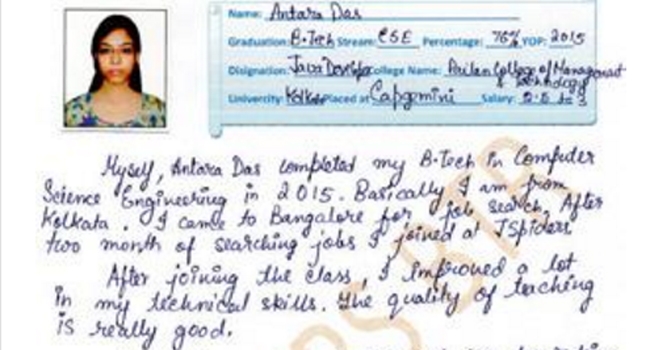 Name: Antara Das
Graduation: B.Tech Stream: CSE Percentage: 76% YOP: 2015
Disignation: Java Developer College Name: Pailan College of Management & Technology
Univercity: Kolkata Placed at Capgemini Salary:
Myself, Antara Das completed my B.Tech in Computer
Science Engineering in 2015. Basically I am from
Kolkata. I came to Bangalore for job search. After
two month of searching jobs I joined at JSpiders
After joining the class, I improved a lot
in my technical skills. The quality of teaching
is really good.